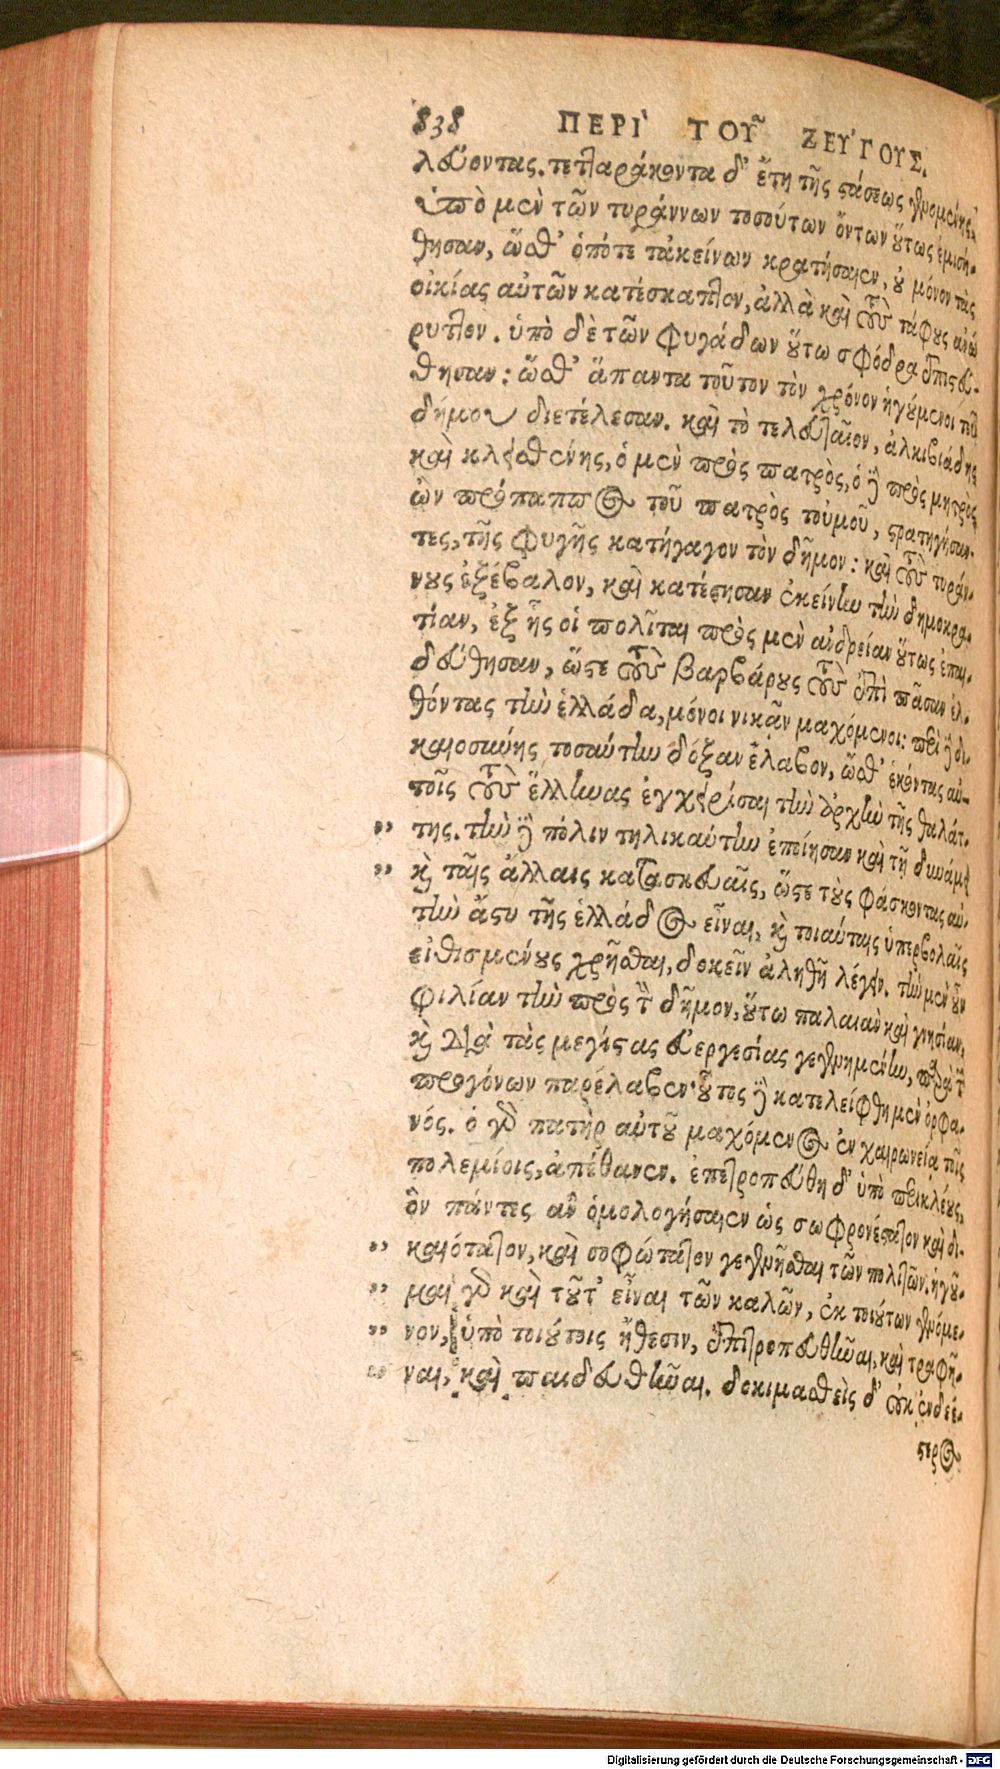 838 ΠΕΡΙ` ΤΟΥ͂ ΖΕΥ´ΓΟΥΣ.
λεύοντας. τετταράκοντα δ' ἔτη τῆς στάσεως γενομένης,
ὑπὸ μὲν τῶν τυράννων τοσούτων ὄντων οὕτως ἐμισή-
θησαν, ὥσθ' ὁπότε τἀκείνων κρατήσαιεν, οὐ μόνον τὰς
οἰκίας αὐτῶν κατέσκαπτον, ἀλλὰ καὶ τοὺς τάφους ἀνώ
ρυττον. ὑπὸ δὲ τῶν φυγάδων οὕτω σφόδρα ἐπιστεύ-
θησαν: ὥσθ' ἅπαντα τοῦτον τὸν χρόνον ἡγούμενοι τοῦ
δήμου διετέλεσαν. καὶ τὸ τελευταῖον, ἀλκιβιάδης
καὶ κλεισθένης, ὁ μὲν πρὸς πατρὸς, ὁ δὲ πρὸς μητρὸς
ὢν πρόπαππος τοῦ πατρὸς τοὐμοῦ, στρατηγήσαν-
τες, τῆς φυγῆς κατήγαγον τὸν δῆμον: καὶ τοὺς τυράν-
νους ἐξέβαλον, καὶ κατέστησαν ἐκείνην τὴν δημοκρα-
τίαν, ἐξ ἧς οἱ πολῖται πρὸς μὲν ἀνδρείαν οὕτως ἐπαι-
δεύθησαν, ὥστε τοὺς βαρβάρους τοὺς ἐπὶ πᾶσαν ἐλ-
θόντας τὴν ἑλλάδα, μόνοι νικᾶν μαχόμενοι: περὶ δὲ δι-
καιοσύνης τοσαύτην δόξαν ἔλαβον, ὥσθ' ἑκόντας αὐ-
τοῖς τοὺς ἕλληνας ἐγχειρίσαι τὴν ἀρχὴν τῆς θαλάτ-
" της. τὴν δὲ πόλιν τηλικαύτην ἐποίησαν καὶ τῇ δυνάμει
" καὶ ταῖς ἄλλαις κατασκευαῖς, ὥστε τοὺς φάσκοντας αὐ-
τὴν ἄστυ τῆς ἑλλάδος εἶναι, καὶ τοιαύταις ὑπερβολαῖς
εἰθισμένους χρῆσθαι, δοκεῖν ἀληθῆ λέγειν. τὴν μὲν οὖν
φιλίαν τὴν πρὸς τὸν δῆμον, οὕτω παλαιὰν καὶ γνησίαν,
καὶ διὰ τὰς μεγίστας εὐεργεσίας γεγενημένην, παρὰ τῶν
προγόνων παρέλαβεν· οὗτος δὲ κατελείφθη μὲν ὀρφα-
νός. ὁ γὰρ πατὴρ αὐτοῦ μαχόμενος ἐν χαιρωνεία τοῖς
πολεμίοις, ἀπέθανεν. ἐπετροπεύθη δ' ὑπὸ περικλέους,
ὃν πάντες ἂν ὁμολογήσαιεν ὡς σωφρονέστατον καὶ δι-
" καιότατον, καὶ σοφώτατον γεγενῆσθαι τῶν πολιτῶν. ἡγοῦ-
" μαι γὰρ καὶ τοῦτ' εἶναι τῶν καλῶν, ἐκ τοιούτων γενόμε-
" νον, ὑπὸ τοιούτοις ἤθεσιν, ἐπιτροπευθῆναι, καὶ τραφῆ-
" ναι, καὶ παιδευθῆναι. δοκιμασθεὶς δ' οὐκ ἐνδεέ-
στερος
Digitalisierung gefördert durch die Deutsche Forschungsgemeinschaft - DFG